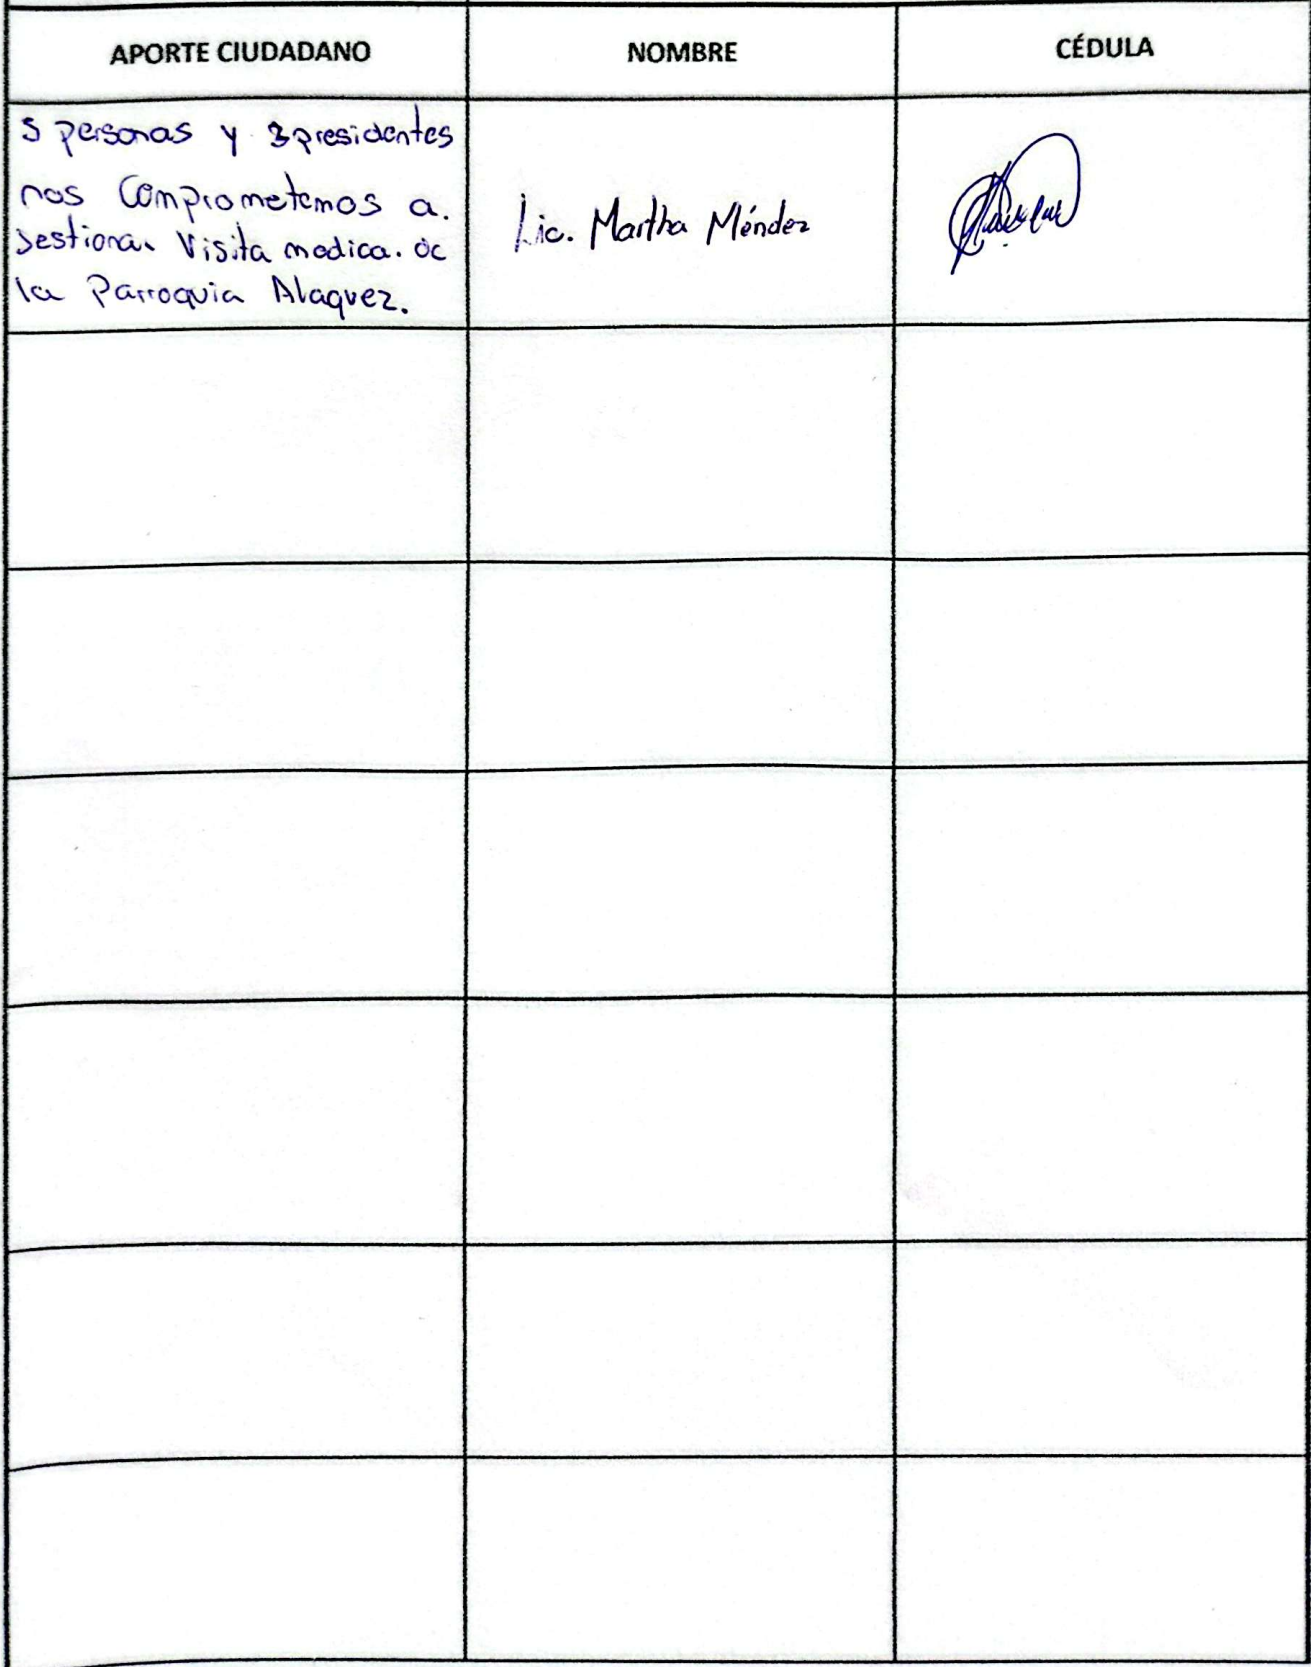 APORTE CIUDADANO NOMBRE CÉDULA
5 personas y 3 presidentes
nos Comprometemos a.
Gestionar Visita medica. de
la Parroquia Alaquez.
Lic. Martha Méndez